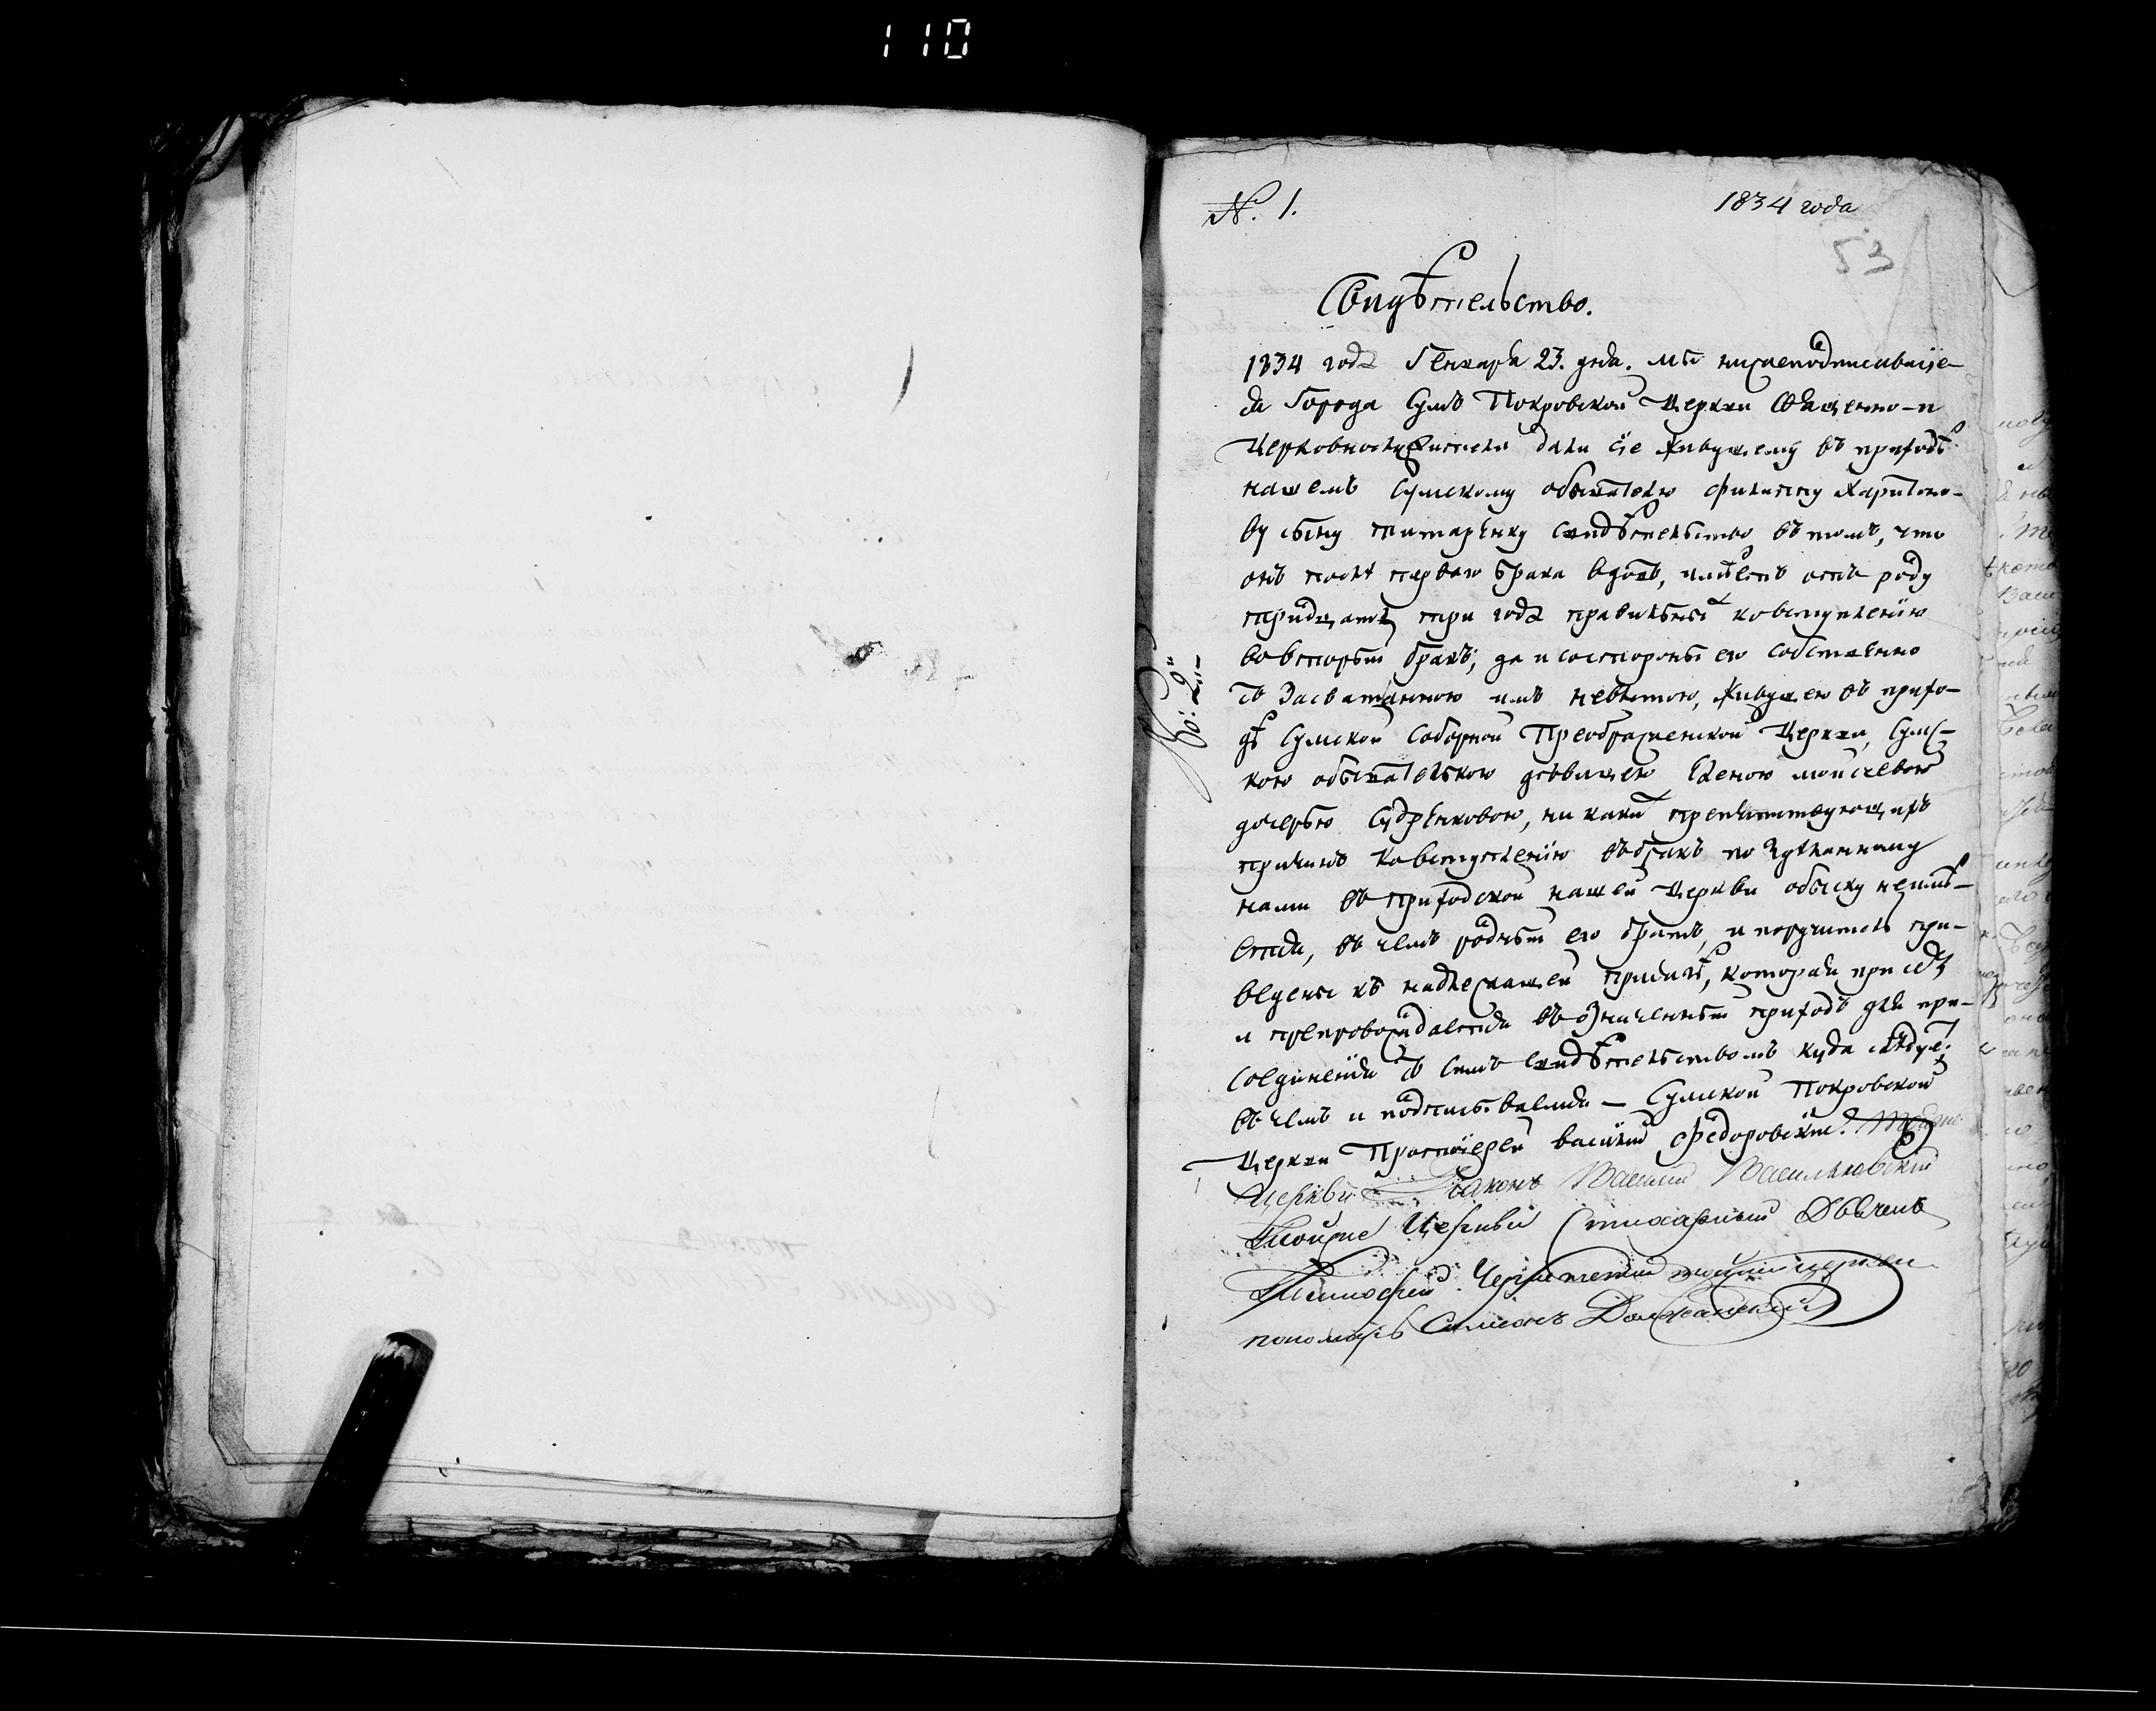 110
№. 1.
1834 года
53
Свидѣтельство.
1834 года Генваря 23. дня. мы нижеподписавшіе-
ся Города Сумъ Покровской Церкви Священно-и
Церковнослужители дали сіе живущему въ приходѣ
нашемъ Сумскому обывателю Филиппу Харитоно-
ву сыну Титаренку свидѣтельство въ томъ, что
онъ послѣ перваго брака вдовъ, имѣетъ отъ роду
тридцать три года правильныя ко вступленію
во вторый бракъ; да и состороны его собственно
съ засватанною имъ невѣстою, живущею въ прихо-
дѣ Сумской Соборной Преображенской Церкви, Сумс-
кою обывательскою дѣвицею Еленою Моисеевою
дочерью, ни какихъ препятствующихъ
причинъ ко вступленію въ бракъ по учиненному
нами въ приходской нашей Церкви обыску неимѣ-
ется, въ чемъ родный его братъ, и поручитель при-
ведены къ надлежащей присягѣ, которая при семъ
и препровождается въ означенный приходъ для при-
соединенія съ симъ свидѣтельствомъ куда слѣдуетъ;
въ чемъ и подписываемся — Сумской Покровской
Церкви Протоіерей Василій Федоровскій. Тоя же
Церкви Діаконъ Василій Васильковскій
Тоиже Церкви Стихарный Дьячекъ
Тимофей тоейже церкви
пономарь Симеонъ